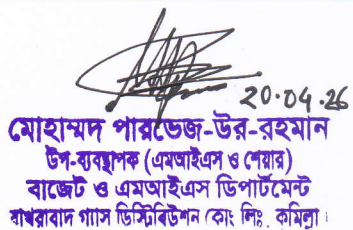 ২০.০৪.২৬
মোহাম্মদ পারভেজ-উর-রহমান
উপ-ব্যবস্থাপক (এমআইএস ও শেয়ার)
বাজেট ও এমআইএস ডিপার্টমেন্ট
বাখরাবাদ গ্যাস ডিস্ট্রিবিউশন কোং লিঃ, কুমিল্লা।